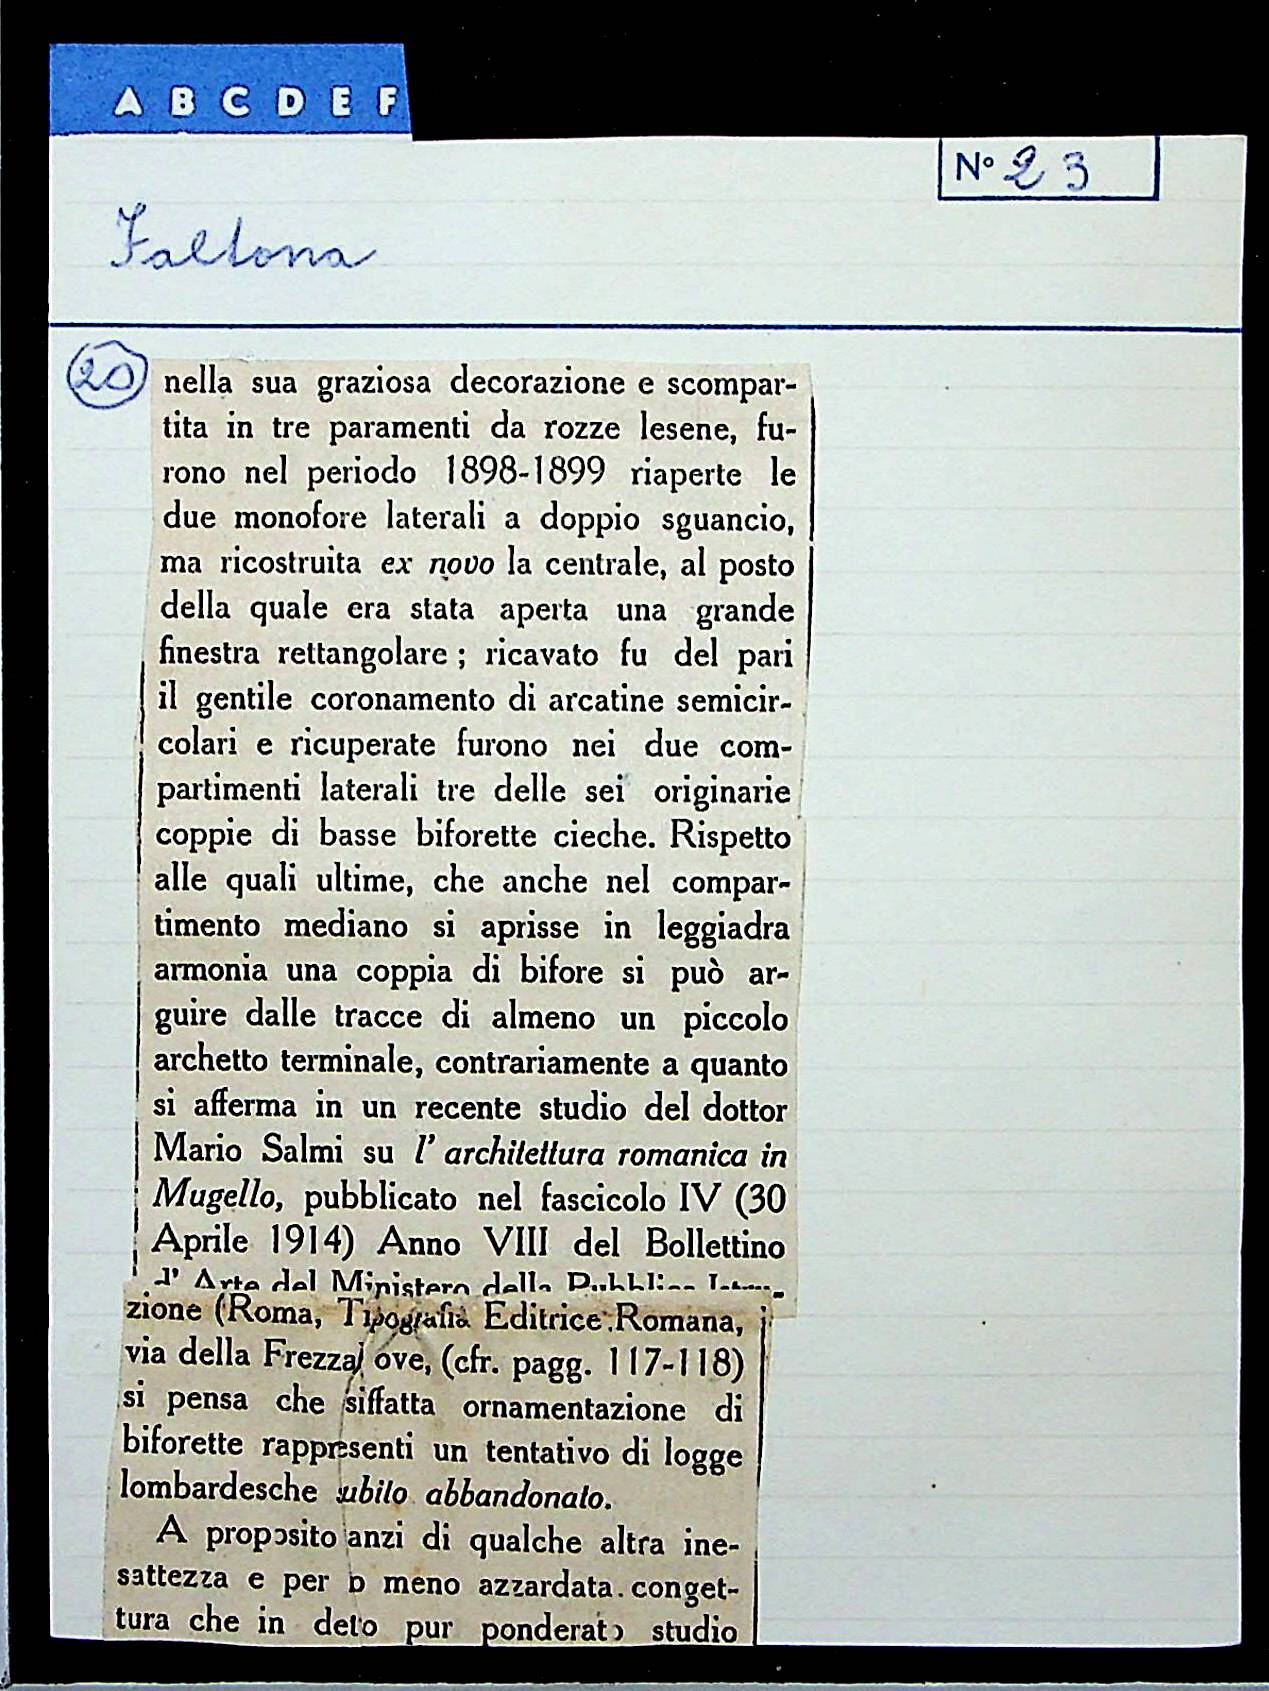 A B C D E F
N° 23
Faltona
20
nella sua graziosa decorazione e scompar-
tita in tre paramenti da rozze lesene, fu-
rono nel periodo 1898-1899 riaperte le
due monofore laterali a doppio sguancio,
ma ricostruita ex novo la centrale, al posto
della quale era stata aperta una grande
finestra rettangolare ; ricavato fu del pari
il gentile coronamento di arcatine semicir-
colari e ricuperate furono nei due com-
partimenti laterali tre delle sei originarie
coppie di basse biforette cieche. Rispetto
alle quali ultime, che anche nel compar-
timento mediano si aprisse in leggiadra
armonia una coppia di bifore si può ar-
guire dalle tracce di almeno un piccolo
archetto terminale, contrariamente a quanto
si afferma in un recente studio del dottor
Mario Salmi su l' architettura romanica in
Mugello, pubblicato nel fascicolo IV (30
Aprile 1914) Anno VIII del Bollettino
d' Arte del Ministero della
zione (Roma, Tipografia Editrice Romana,
via della Frezza) ove, (cfr. pagg. 117-118)
si pensa che siffatta ornamentazione di
biforette rappresenti un tentativo di logge
lombardesche subito abbandonato.
A proposito anzi di qualche altra ine-
sattezza e per lo meno azzardata congget-
tura che in detto pur ponderato studio